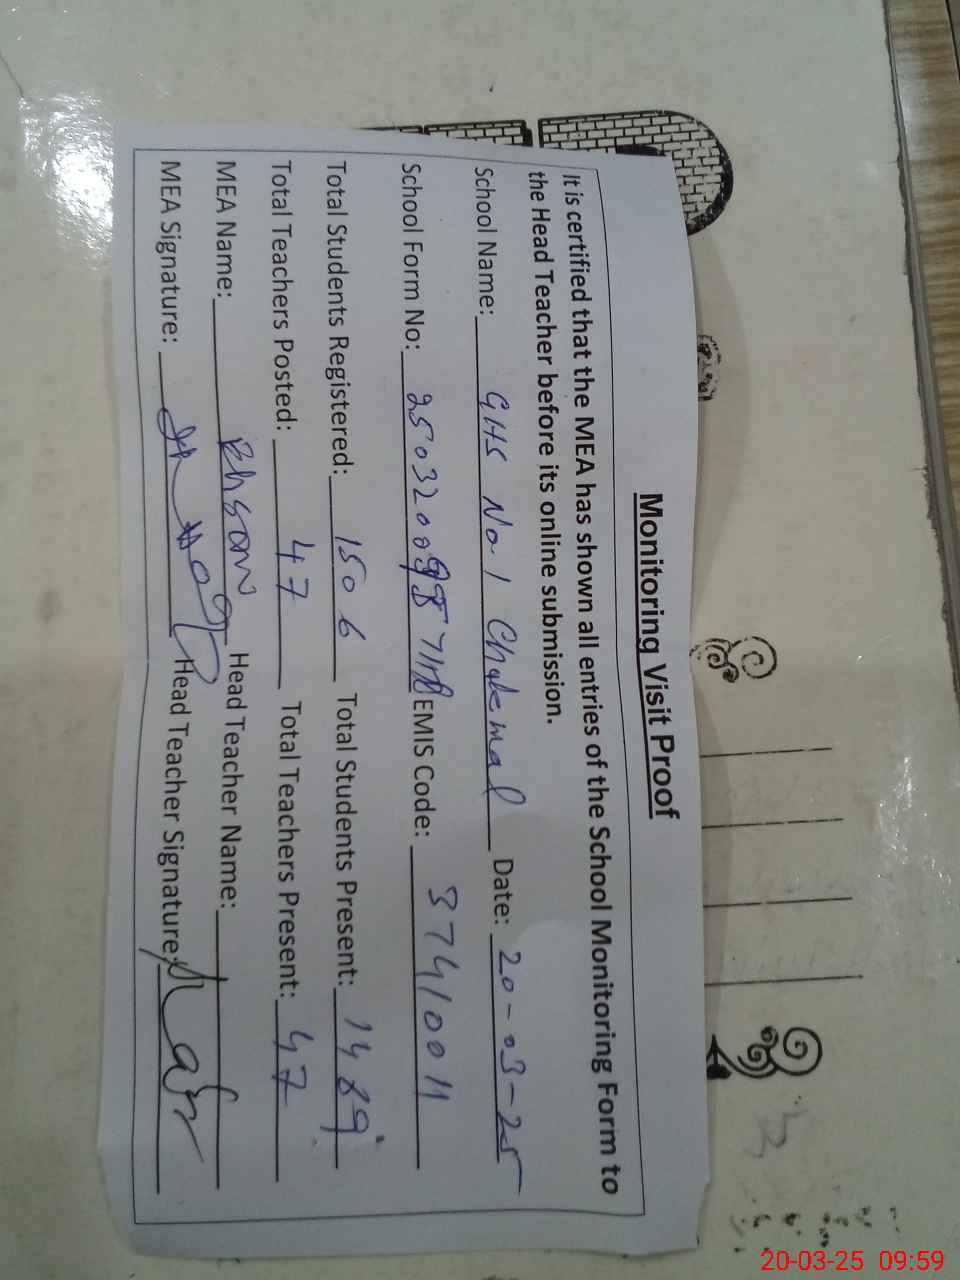 Monitoring Visit Proof
It is certified that the MEA has shown all entries of the School Monitoring Form to
the Head Teacher before its online submission.
School Name: GHS No. 1 Chakemal Date: 20-03-25
School Form No: EMIS Code: 37410011
Total Students Registered: 1506 Total Students Present: 1489
Total Teachers Posted: 47 Total Teachers Present: 47
MEA Name: Head Teacher Name:
MEA Signature: Head Teacher Signature:
20-03-25 09:59